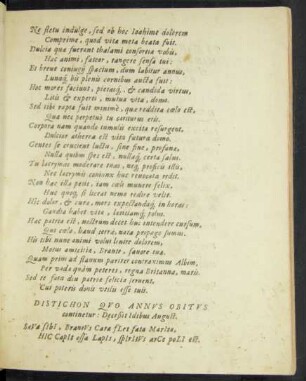 Ne fletu indulge, sed ob hoc Ioahime dolorem
Comprime, quod vita meta beata fuit.
Dulcia quæ fuerunt thalami consortia vobis,
Hac animi, fateor, tangere sensa tui:
Et breve coniugij spacium, dum labitur annus,
Lunaq; bis plenis cornibus aucta fuit:
Hos mores factunt, pietasq;, & candida virtus,
Litis & expers, mutua vita, domus.
Sed tibi rapta fuit nimium, quæ reddita cælo est,
Qua nec perpetuo tu cariturus eris.
Corpora nam quando tumulis excita resurgent,
Dulcior ætherea est vita futura domo.
Gentes se cruciet luctu, sine fine, profana,
Nulla quibus spes est, nullaq; certa salus.
Tu lacrymas moderare tuas, neq; proficis illis,
Nec lacrymis coniunx huc revocata redit.
Non hæc illa petit, iam cælo munere felix,
Huc quoq; si liceat nemo redire velit.
Hic dolor, & cura, mors expectandaq; in horas:
Gaudia habet vita, lætitiamq; polus.
Hac patria est, meliorem decet huc intendere cursum,
Qui cælo, haud terra, nota propago sumus.
His tibi nunc animi volui lenire dolorem,
Motus amicitia, Brante, favore tua.
Quam primi ad flavum pariter contraximus Albim,
Per vada quám peteres, regna Britanna, maris.
Sed te fata diu patriæ felicia servent,
Cui poteris donis utilis esse tuis.
DISTICHON QVO ANNVS OBITVS
continetur: Decessit Idibus August.
HIC CapIt ossa LapIs, spIrItVs arCe poLI est.